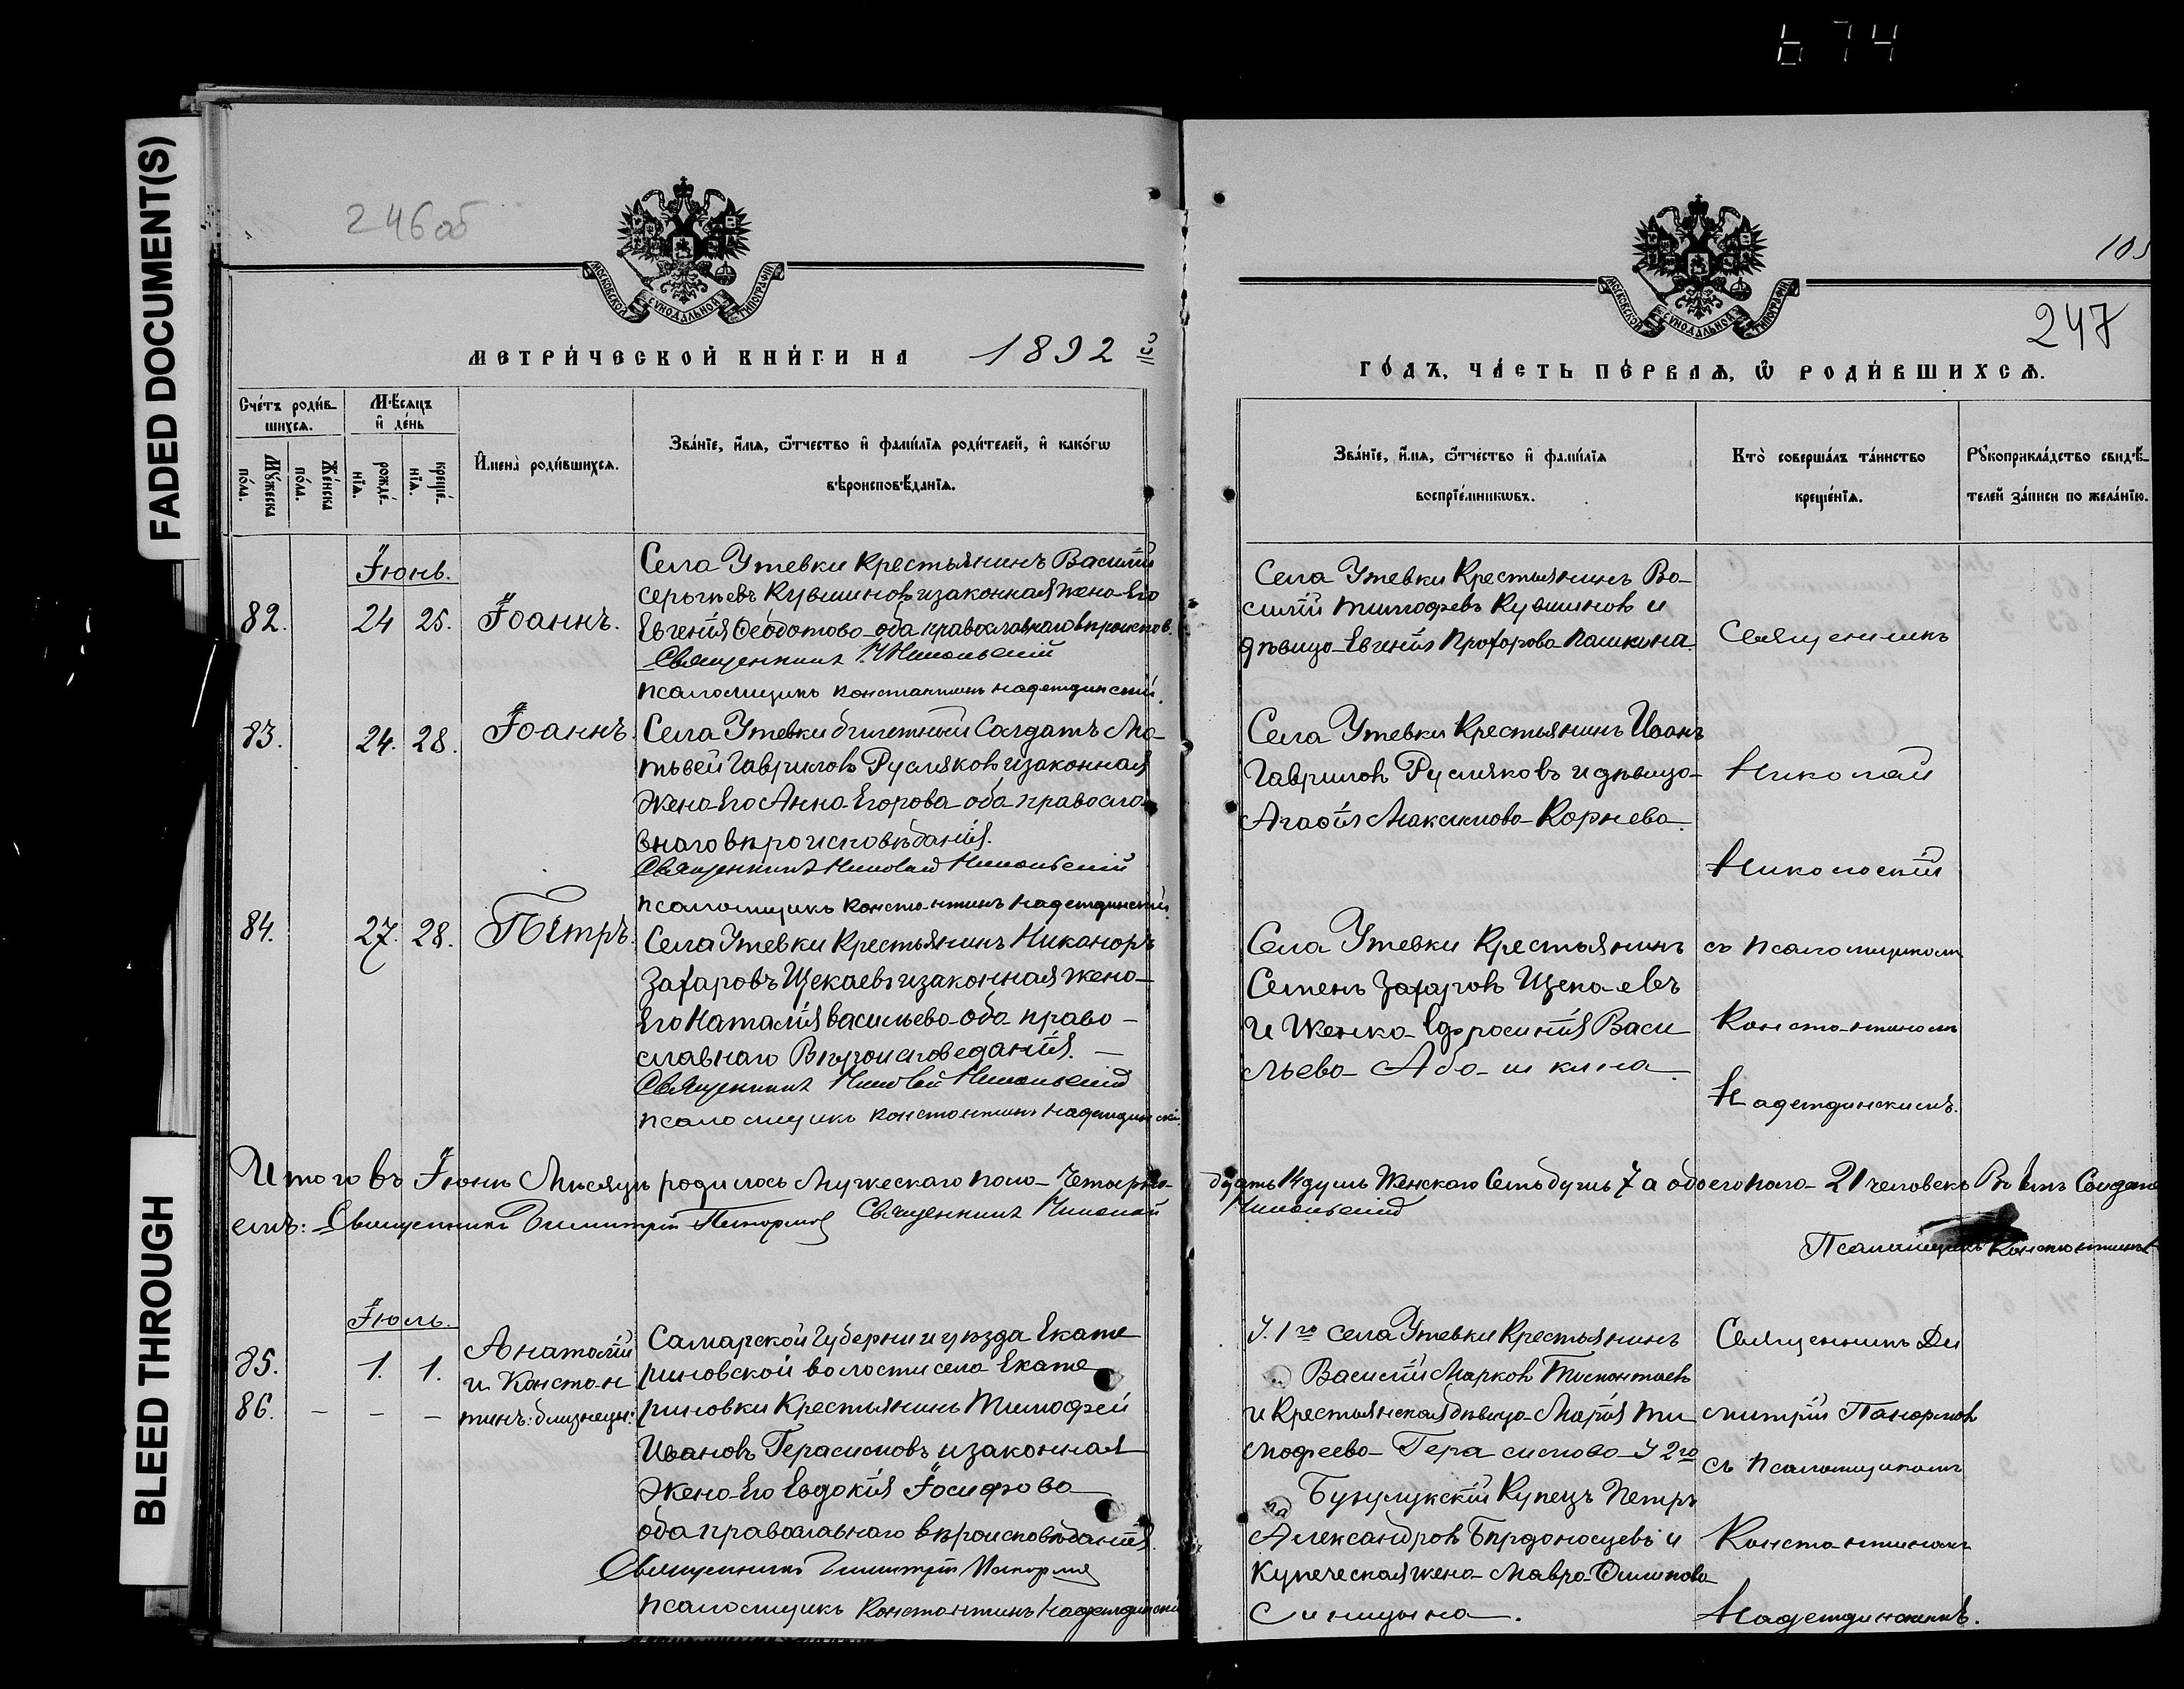 674
FADED DOCUMENT(S)
BLEED THROUGH
246об
МОСКОВСКОЙ СУНОДАЛЬНОЙ ТИПОГРАФІИ
МЕТРИ́ЧЕСКОЙ КНИ́ГИ НА 1892 й
Сче́тъ роди́в-
шихсѧ.
Мѣ́сѧцъ
и҆ де́нь
Мꙋ́жеска
по́ла.
Же́нска
по́ла.
рожде́-
нїѧ.
креще́-
нїѧ.
И҆мена̀ роди́вшихсѧ.
Зва́нїе, и҆́мѧ, ѻ҆́тчество и҆ фами́лїѧ роди́телей, и҆ како́гѡ
вѣроисповѣ́данїѧ.
Іюнь.
82. 24 25. Іоаннъ.
Села Утевки Крестьянинъ Василій
Сергѣевъ Кувшиновъ и законная жена Его
Евгенія Ѳеодотова оба православнаго вѣроиспов.
Священникъ Н Никольскій
Псаломщикъ Константинъ Надеждинскій.
83. 24. 28. Іоаннъ.
Села Утевки билетный Салдатъ Ма-
тѳей Гавриловъ Русляковъ и законная
Жена Его Анна Егорова оба правосла-
внаго вѣроисповѣданія.
Священникъ Николай Никольскій
Псаломщикъ Константинъ Надеждинскій
84. 27. 28. Петръ.
Села Утевки Крестьянинъ Никаноръ
Захаровъ Щекаевъ и законная жена
Его Наталія Васильева оба право-
славнаго Вѣроисповеданія. —
Священникъ Николай Никольскій
Псаломщикъ Константинъ Надеждинскій.
Итого въ Іюнѣ Мѣсяцѣ родилось Мужескаго пола Четырна-
емъ: Священникъ Димитрій Панормовъ Священникъ Николай
Іюль.
85. 1. 1. Анатолій
и Констан
86. — — — тинъ: близнецы:
Самарской Губерніи и уѣзда Екате
риновской волости села Екате
риновки Крестьянинъ Тимофей
Ивановъ Герасимовъ и законная
Жена Его Евдокія Іосифова
оба православнаго вѣроисповѣданія.
Священникъ Димитрій Панормовъ
Псаломщикъ Константинъ Надеждинскій
105
МОСКОВСКОЙ СУНОДАЛЬНОЙ ТИПОГРАФІИ
247
ГО́ДЪ, ЧА́СТЬ ПЕ́РВАѦ, Ѡ҆ РОДИ́ВШИХСѦ.
Зва́нїе, и҆́мѧ, ѻ҆́тчество и҆ фами́лїѧ
воспрїе́мникѡвъ.
Кто̀ соверша́лъ та́инство
креще́нїѧ.
Рꙋкоприкла́дство свидѣ́-
телей за́писи по жела́нїю.
Села Утевки Крестьянинъ Ва-
силій Тимофѣевъ Кувшиновъ и
дѣвица Евгенія Прохорова Пашкина.
Священникъ
Села Утевки Крестьянинъ Иванъ
Гавриловъ Русляковъ и дѣвица
Агафія Максимова Корнева.
Николай
Никольскій
Села Утевки Крестьянинъ
Семенъ Захаровъ Щекаевъ
и Женка Ефросинія Васи
льева Абашкина
съ псаломщикомъ
Константиномъ
Надеждинскимъ.
дцать 14 душъ Женскаго Семь душъ 7 а обоего пола 21 человекъ
Никольскій
Псаломщикъ Константинъ
У. 1го Села Утевки Крестьянинъ
Василій Марковъ
и Крестьянская дѣвица Марія Ти
мофеева Герасимова У 2го
Бузулукскій Купецъ Петръ
Александровъ и
Купеческая жена Мавра Филипова
Синицына.
Священникъ Ди
митрій Панормовъ
съ псаломщикомъ
Константиномъ
Надеждинскимъ.